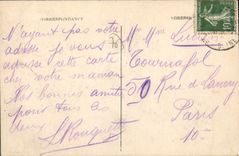 CORRESPONDANCE
N'ayant pas votre
adresse je vous
adresse cette carte
chez votre maman.
Nos bonnes amitiés
pour tous les
deux
L. Rouquette
Mr Mme Lucien
Tournafol
50 Rue de Lancry
Paris
10e